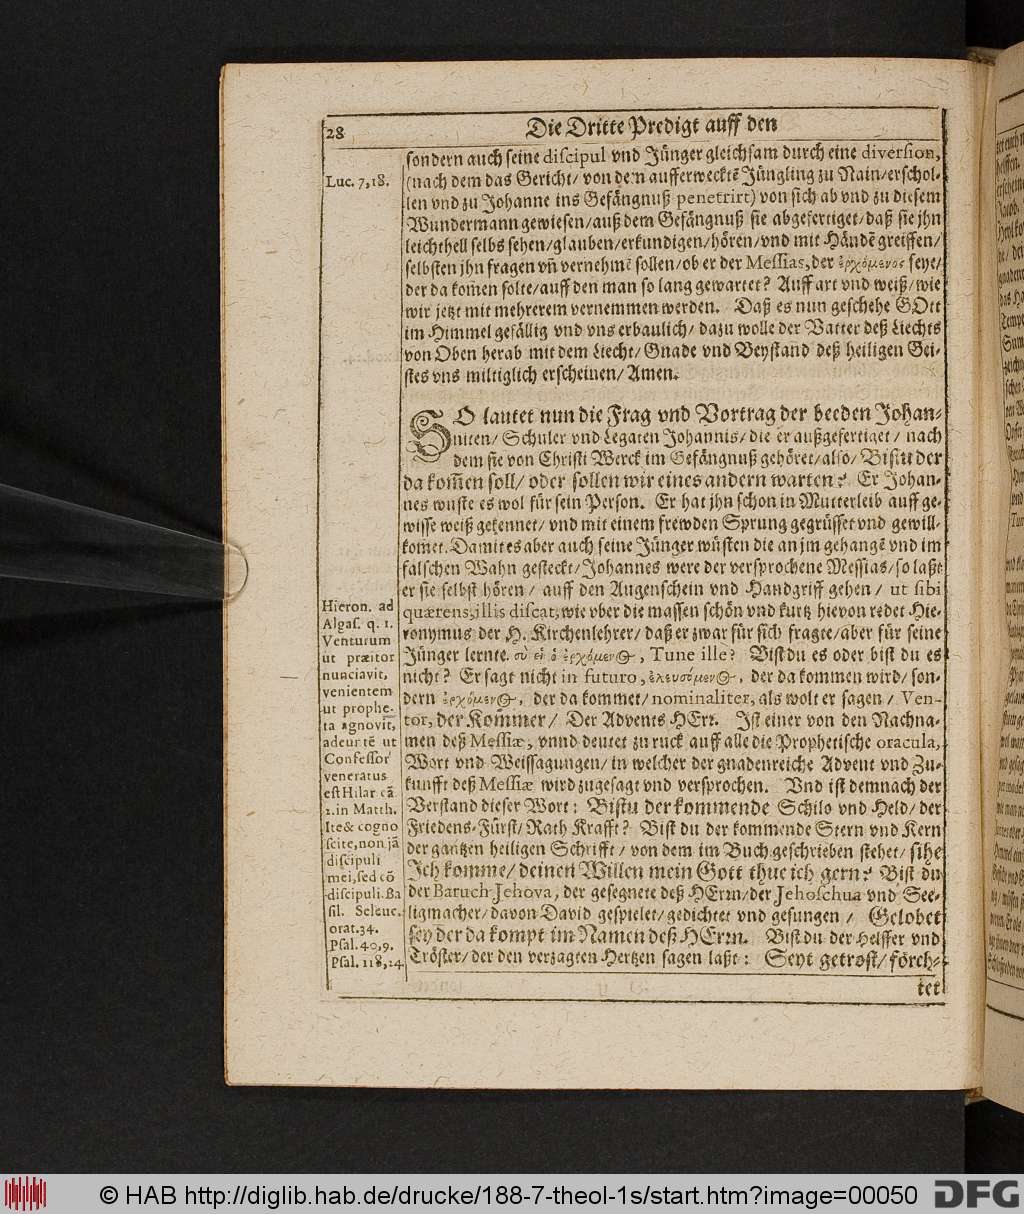 28
Die Dritte Predigt auff den
Luc. 7, 18.
sondern auch seine discipul vnd Jünger gleichsam durch eine diversion,
(nach dem das Gericht/ von dem aufferwecktē Jüngling zu Nain/ erschol-
len vnd zu Johanne ins Gefängnuß penetrirt) von sich ab vnd zu diesem
Wundermann gewiesen/ auß dem Gefängnuß sie abgefertiget/ daß sie jhn
leichthell selbs sehen/ glauben/ erkundigen/ hören/ vnd mit Händē greiffen/
selbsten jhn fragen vñ vernehmē sollen/ ob er der Messias, der ἐρχόμενος seye/
der da kom̃en solte/ auff den man so lang gewartet? Auff art vnd weiß/ wie
wir jetzt mit mehrerem vernemmen werden. Daß es nun geschehe GOtt
im Himmel gefällig vnd vns erbaulich/ dazu wolle der Vatter deß Liechts
von Oben herab mit dem Liecht/ Gnade vnd Beystand deß heiligen Gei-
stes vns miltiglich erscheinen/ Amen.
SO lautet nun die Frag vnd Vortrag der beeden Johan-
niten/ Schuler vnd Legaten Johannis/ die er außgefertiget/ nach
dem sie von Christi Werck im Gefängnuß gehöret/ also/ Bistu der
da kom̃en soll/ oder sollen wir eines andern warten? Er Johan-
nes wuste es wol für sein Person. Er hat jhn schon in Mutterleib auff ge-
wisse weiß gekennet/ vnd mit einem frewden Sprung gegrüsset vnd gewill-
komet. Damit es aber auch seine Jünger wüsten die an jm gehangē vnd im
falschen Wahn gesteckt/ Johannes were der versprochene Messias/ so laßt
er sie selbst hören/ auff den Augenschein vnd Handgriff gehen/ ut sibi
quærens, illis discat, wie vber die massen schön vnd kurtz hievon redet Hie-
ronymus der H. Kirchenlehrer/ daß er zwar für sich fragte/ aber für seine
Jünger lernte. σὺ εἶ ὁ ἐρχόμενος, Tune ille? Bist du es oder bist du es
nicht? Er sagt nicht in futuro, ἐλευσόμενος, der da kommen wird/ son-
dern ἐρχόμενος, der da kommet/ nominaliter, als wolt er sagen/ Ven-
tor, der Kom̃mer/ Der Advents HErr. Ist einer von den Nachna-
men deß Messiæ, vnnd deutet zu ruck auff alle die Prophetische oracula,
Wort vnd Weissagungen/ in welcher der gnadenreiche Advent vnd Zu-
kunfft deß Messiæ wird zugesagt vnd versprochen. Vnd ist demnach der
Verstand dieser Wort: Bistu der kommende Schilo vnd Held/ der
Friedens-Fürst/ Rath Krafft? Bist du der kommende Stern vnd Kern
der gantzen heiligen Schrifft/ von dem im Buch geschrieben stehet/ sihe
Ich komme/ deinen Willen mein Gott thue ich gern? Bist du
der Baruch Jehova, der gesegnete deß HErrn/ der Jehoschua vnd See-
ligmacher/ davon David gespielet/ gedichtet vnd gesungen/ Gelobet
sey der da kompt im Namen deß HErrn. Bist du der Helffer vnd
Tröster/ der den verzagten Hertzen sagen laßt: Seyt getrost/ förch-
tet
Hieron. ad
Algas. q. 1.
Venturum
ut præitor
nunciavit,
venientem
ut prophe-
ta agnovit,
adeuntē ut
Confessor
veneratus
est Hilar cā
1. in Matth.
Ite & cogno
scite, non jā
discipuli
mei, sed cō
discipuli. Ba
sil. Seleuc.
orat. 34.
Psal. 40, 9.
Psal. 118, 24
© HAB http://diglib.hab.de/drucke/188-7-theol-1s/start.htm?image=00050
DFG